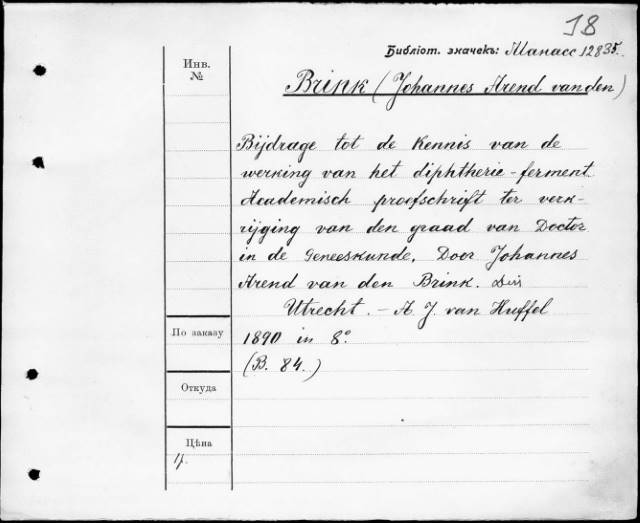 18
Библіот. значекъ: Манасс 12835.
Инв.
№
Brink (Johannes Arend van den)
Bijdrage tot de Kennis van de
werking van het diphtherie-ferment.
Academisch proefschrift ter verk-
rijging van den graad van Doctor
in de Geneeskunde, Door Johannes
Arend van den Brink. Diss
Utrecht. – A. J. van Huffel
По заказу
1890 in 8°
(B. 84.)
Откуда
Цѣна